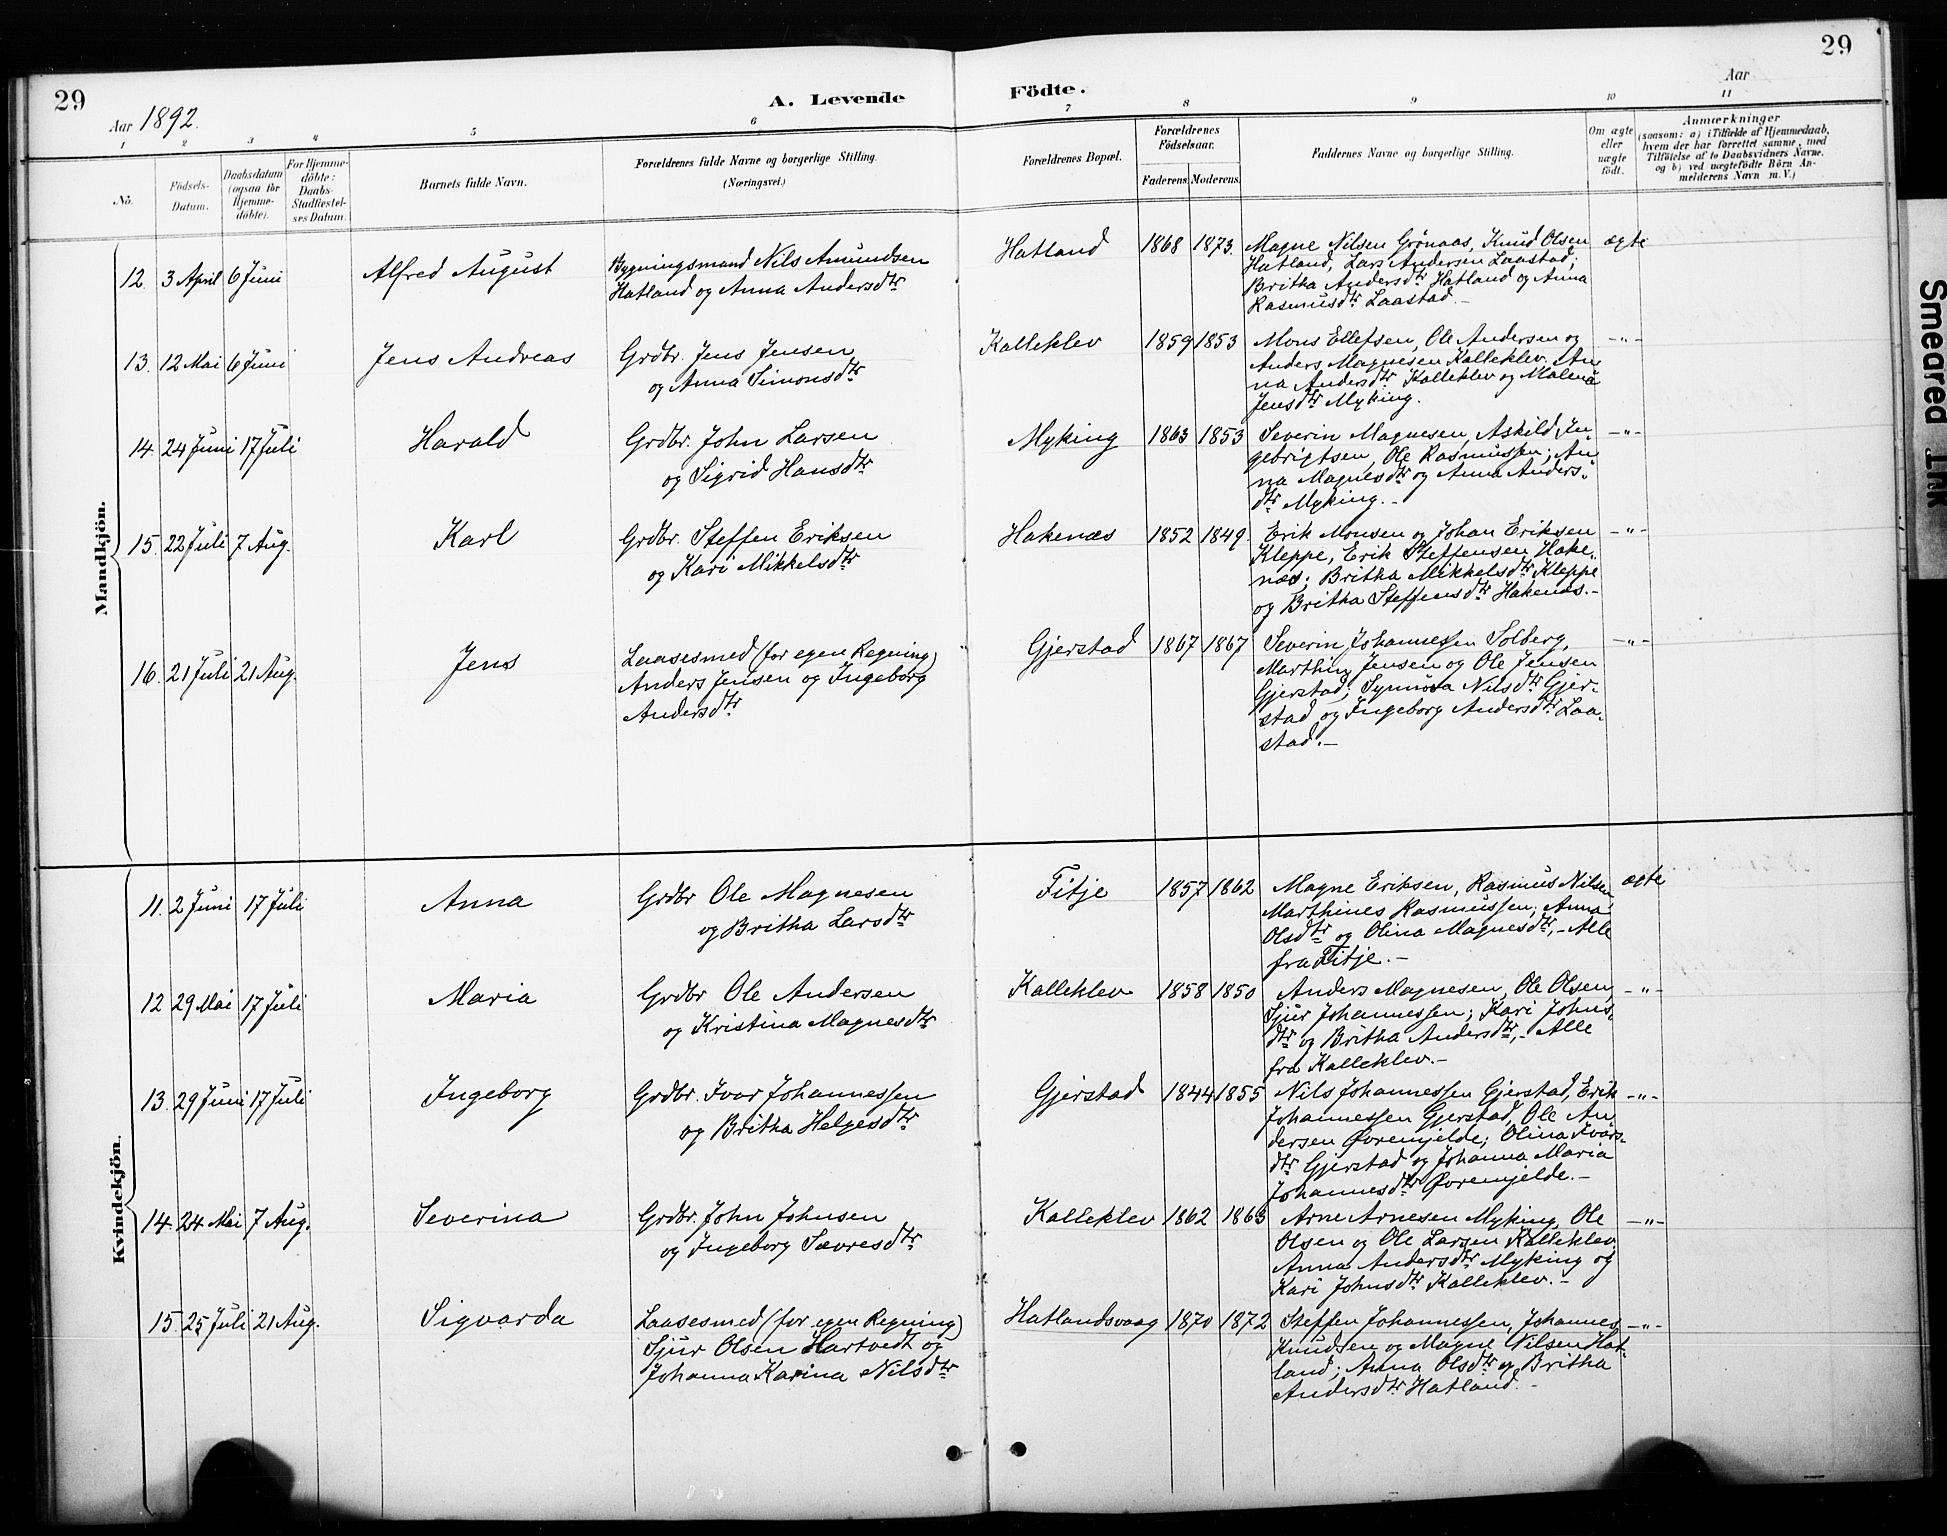 29
Aar 1892.
A. Levende Födte.
29
Aar
1 2 3 4 5 6 7 8 9 10 11
No.
Födsels-Datum.
Daabsdatum (ogsaa för Hjemme-döbte).
For Hjemme-döbte: Daabs-Stadfæstel-ses Datum.
Barnets fulde Navn.
Forældrenes fulde Navne og borgerlige Stilling.
(Næringsvei.)
Forældrenes Bopæl.
Forældrenes Födselsaar.
Faderens. Moderens.
Faddernes Navne og borgerlige Stilling.
Om ægte eller uægte födt.
Anmærkninger
(saasom: a) i Tilfælde af Hjemmedaab,
hvem der har forrettet samme, med
Tilföielse af to Daabsvidners Navne.
og b) ved uægtefödte Börn An-
melderens Navn m. V.)
Mandkjön.
12. 3 April 6 Juni Alfred August
Bygningsmand Nils Amundsen
Hatland og Anna Andersdtr
Hatland 1868 1873.
Magne Nilsen Grønaas, Knud Olsen
Hatland, Lars Andersen Laastad;
Britha Andersdtr Hatland og Anna
Rasmusdtr Laastad.-
ægte
13. 12 Mai 6 Juni Jens Andreas
Grdbr. Jens Jensen
og Anna Simonsdtr
Kalleklev 1859 1853
Mons Ellefsen, Ole Andersen og
Anders Magnesen Kalleklev. An-
na Andersdtr Kalleklev og Malena
Jensdtr Myking.
-"-
14. 24 Juni 17 Juli Harald
Grdbr. John Larsen
og Sigrid Hansdtr
Myking 1863 1853
Severin Magnesen, Askild In-
gebrigtsen, Ole Rasmussen; An-
na Magnesdtr og Anna Anders-
dtr Myking.-
-"-
15. 22 Juli 7 Aug. Karl
Grdbr. Steffen Eriksen
og Kari Mikkelsdtr
Hakenæs 1852 1849.
Erik Monsen og Johan Eriksen
Kleppe, Erik Steffensen Hake-
næs; Britha Mikkelsdtr Kleppe
og Britha Steffensdtr Hakenæs.-
-"-
16. 21 Juli 21 Aug. Jens
Laasesmed (for egen Regning)
Anders Jensen og Ingeborg
Andersdtr
Gjerstad 1867 1867
Severin Johannessen Solberg,
Marthin Jensen og Ole Jensen
Gjerstad; Synnøva Nilsdtr Gjer-
stad og Ingeborg Andersdtr Laa-
stad.-
-"-
Kvindekjön.
11. 2 Juni 17 Juli Anna
Grdbr Ole Magnesen
og Britha Larsdtr
Fitje 1857 1862
Magne Eriksen, Rasmus Nilsen
Marthines Rasmussen; Anna
Olsdtr og Olina Magnesdtr,- Alle
fra Fitje.-
ægte
12 29 Mai 17 Juli Maria
Grdbr Ole Andersen
og Kristina Magnesdtr
Kalleklev 1858 1850
Anders Magnesen, Ole Olsen,
Sjur Johannessen; Kari Johns-
dtr og Britha Andersdtr,- Alle
fra Kalleklev.-
-"-
13. 29 Juni 17 Juli Ingeborg
Grdbr. Ivar Johannessen
og Britha Helgesdtr
Gjerstad 1844 1855
Nils Johannessen Gjerstad, Erik
Johannessen Gjerstad, Ole An-
dersen Øvremjelde; Olina Ivars-
dtr Gjerstad og Johanna Maria
Johannesdtr Øvremjelde.-
-"-
14. 24 Mai 7 Aug. Severina
Grdbr. John Johnsen
og Ingeborg Sævresdtr
Kalleklev 1862 1863
Arne Arnesen Myking, Ole
Olsen og Ole Larsen Kalleklev.
Anna Andersdtr Myking og
Kari Johnsdtr Kalleklev.-
-"-
15. 25 Juli 21 Aug. Sigvarda
Laasesmed (for egen Regning)
Sjur Olsen Hartvedt og
Johanna Karina Nilsdtr
Hatlandsvaag 1870 1872
Steffen Johannessen, Johannes
Knudsen og Magne Nilsen Hat-
land; Anna Olsdtr og Britha
Andersdtr Hatland.-
-"-
Smeared Ink